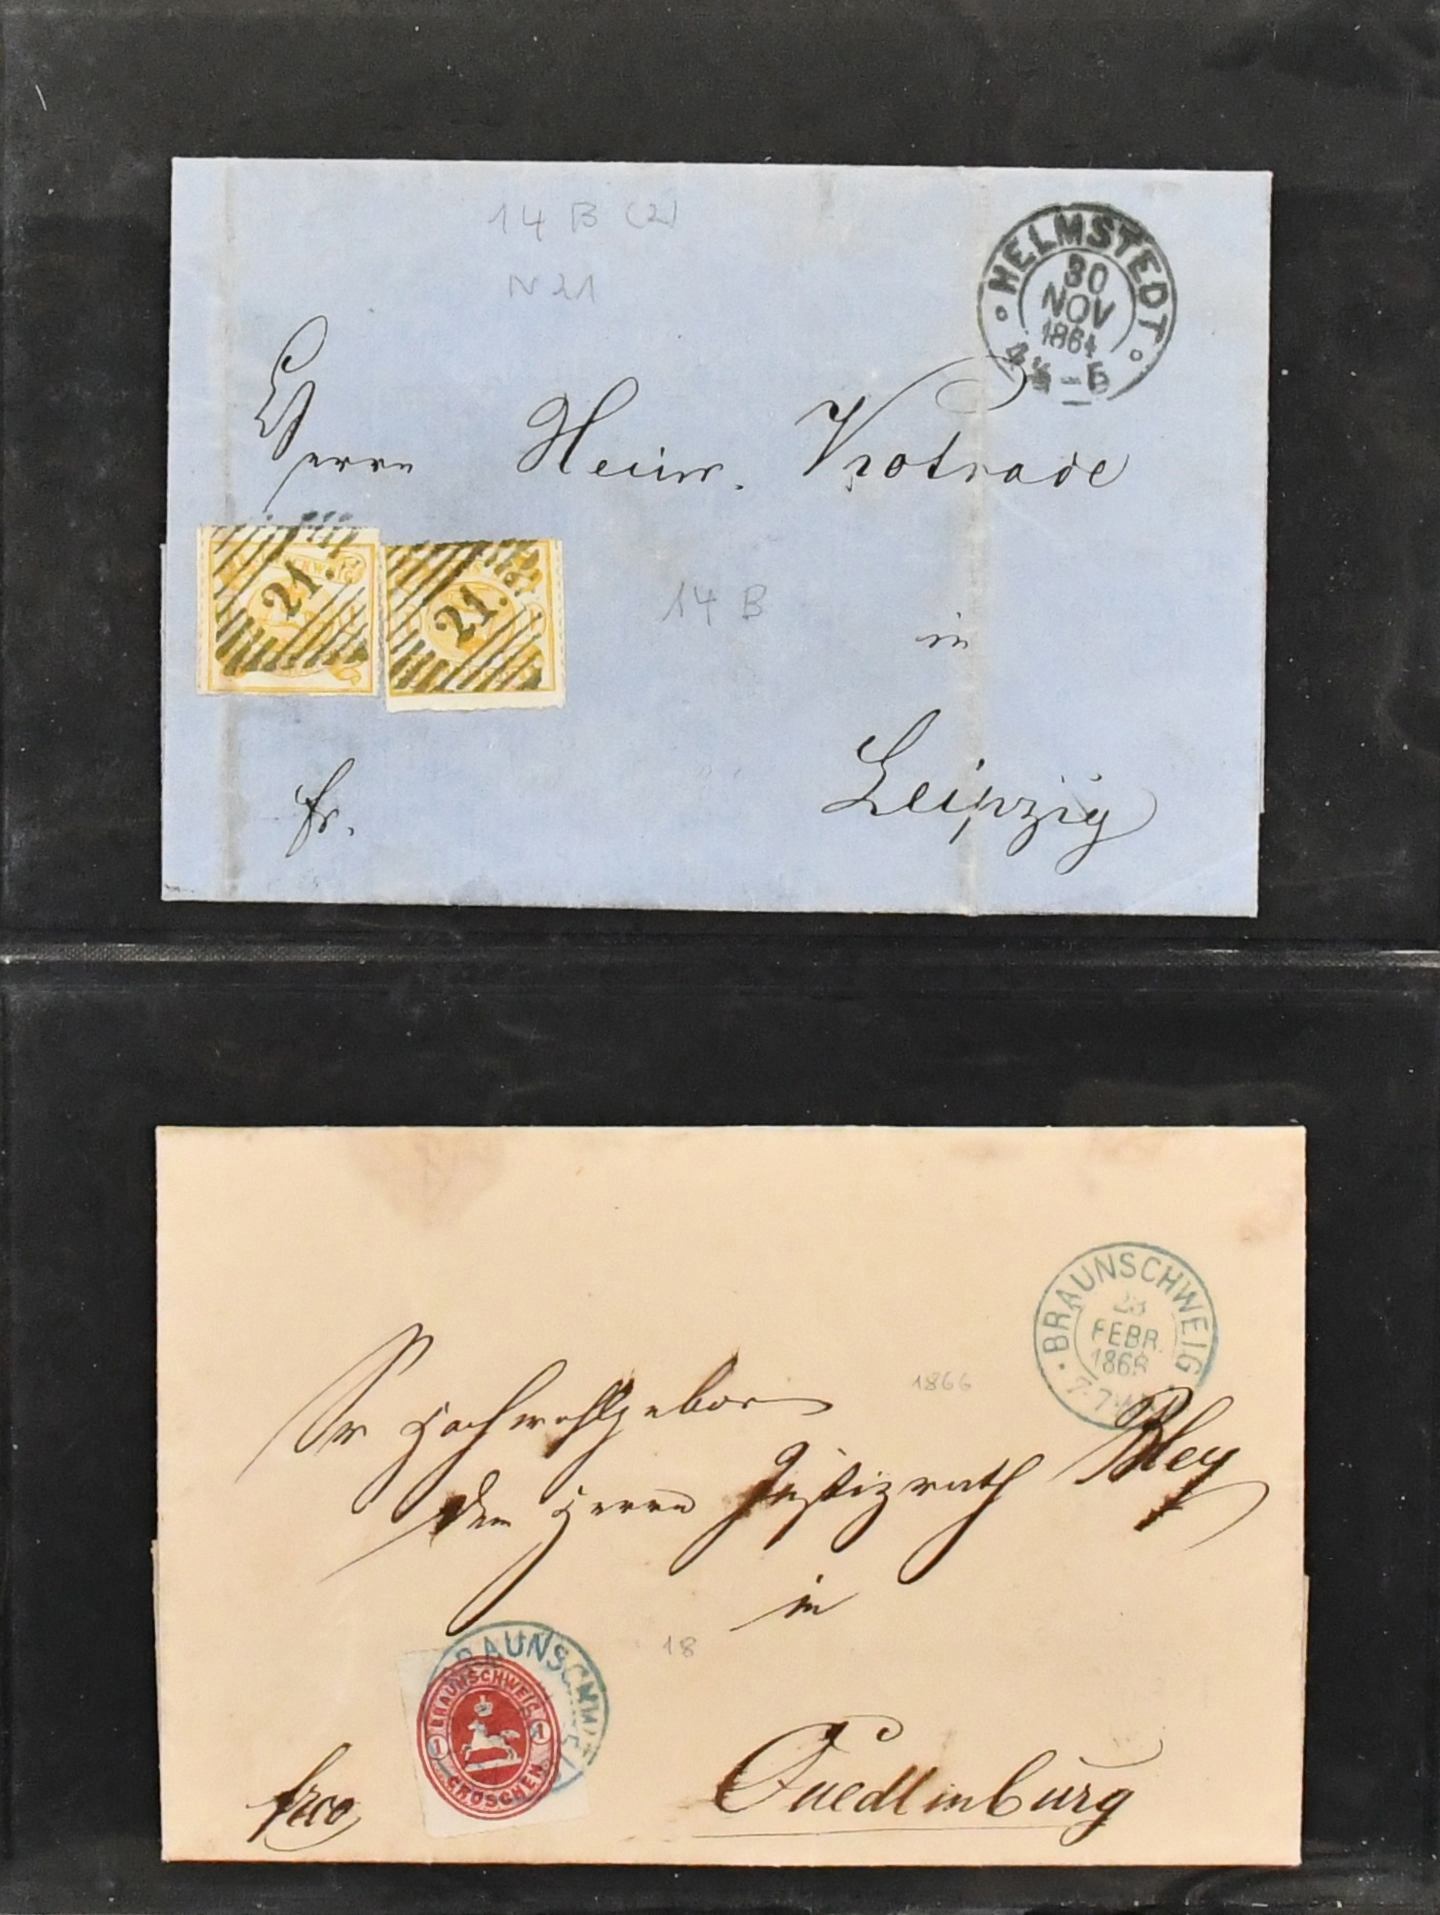 14 B (2)
N 21
HELMSTEDT
30
NOV
1864
4½-5
Herrn Heinr.
21.
21.
14 B
in
Leipzig
fr.
BRAUNSCHWEIG
FEBR.
1866
1866
Sr Hochwohlgeboren
dem Herrn Justizrath Bley
in
18
BRAUNSCHWEIG
BRAUNSCHWEIG
1 1
GROSCHEN
frco
Quedlinburg